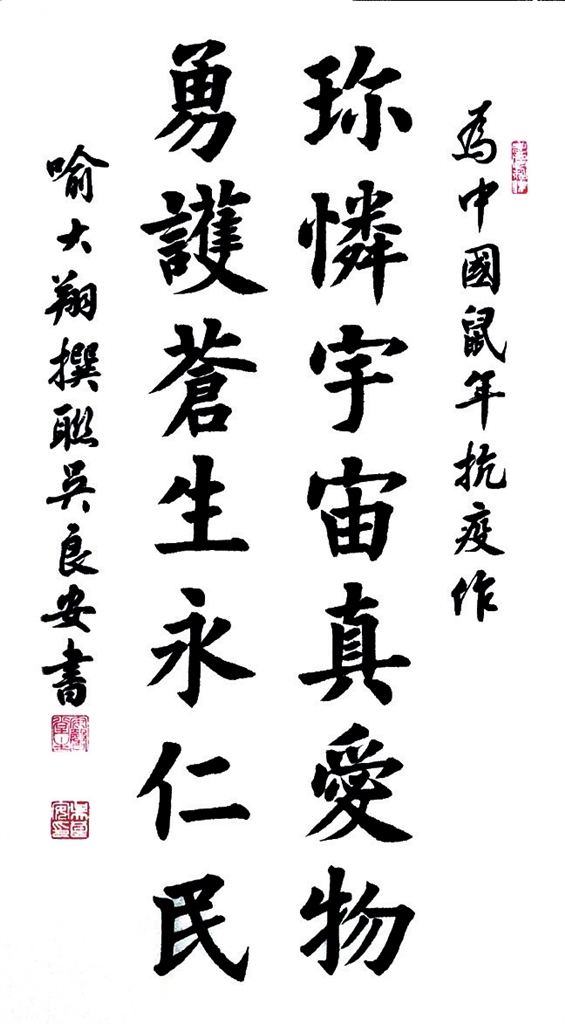 為中國鼠年抗疫作
珎憐宇宙真愛物
勇護蒼生永仁民
喻大翔撰聯吳良安書